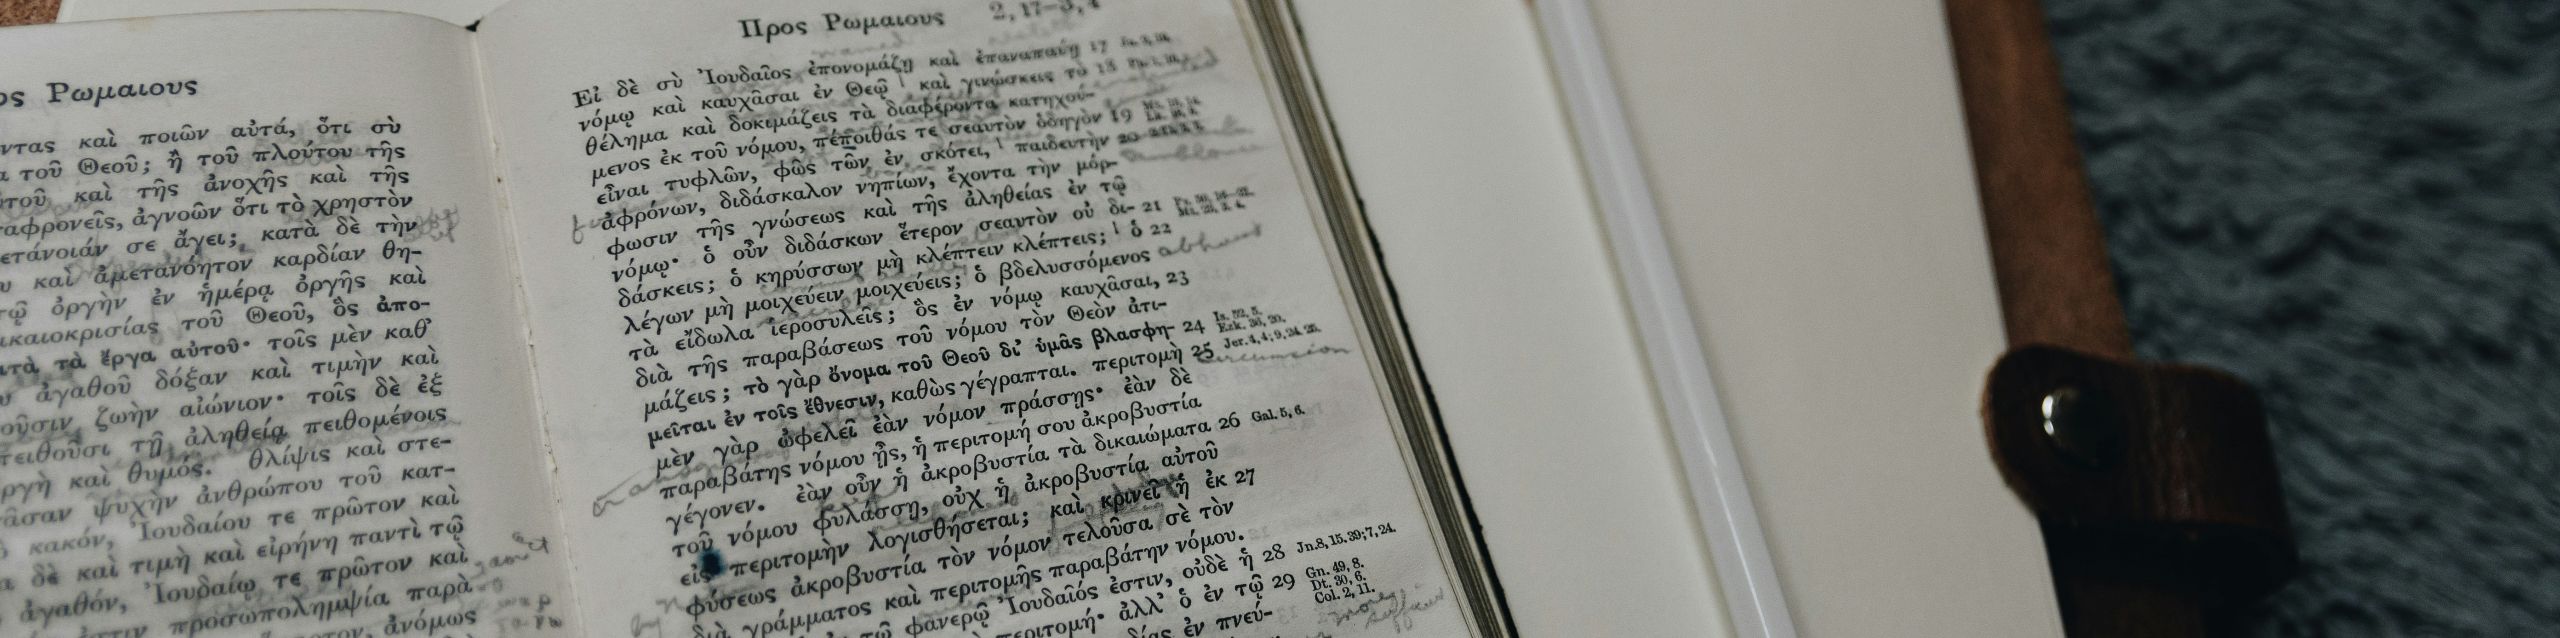 ος Ρωμαιους
ντας καὶ ποιῶν αὐτά, ὅτι σὺ
τοῦ Θεοῦ; ἢ τοῦ πλούτου τῆς
τοῦ καὶ τῆς ἀνοχῆς καὶ τῆς
αφρονεῖς, ἀγνοῶν ὅτι τὸ χρηστὸν
ετάνοιάν σε ἄγει; κατὰ δὲ τὴν
υ καὶ ἀμετανόητον καρδίαν θη-
τῷ ὀργὴν ἐν ἡμέρᾳ ὀργῆς καὶ
ικαιοκρισίας τοῦ Θεοῦ, ὃς ἀπο-
ατὰ τὰ ἔργα αὐτοῦ· τοῖς μὲν καθ'
υ ἀγαθοῦ δόξαν καὶ τιμὴν καὶ
οῦσιν ζωὴν αἰώνιον· τοῖς δὲ ἐξ
πειθοῦσι τῇ ἀληθείᾳ πειθομένοις
ργὴ καὶ θυμός. θλίψις καὶ στε-
ᾶσαν ψυχὴν ἀνθρώπου τοῦ κατ-
ὸ κακόν, Ἰουδαίου τε πρῶτον καὶ
α δὲ καὶ τιμὴ καὶ εἰρήνη παντὶ τῷ
ἀγαθόν, Ἰουδαίῳ τε πρῶτον καὶ
ἐστιν προσωπολημψία παρὰ
ἀνόμως
Προς Ρωμαιους 2, 17—3, 4
Εἰ δὲ σὺ Ἰουδαῖος ἐπονομάζῃ καὶ ἐπαναπαύῃ 17
νόμῳ καὶ καυχᾶσαι ἐν Θεῷ | καὶ γινώσκεις τὸ 18
θέλημα καὶ δοκιμάζεις τὰ διαφέροντα κατηχού-
μενος ἐκ τοῦ νόμου, πέποιθάς τε σεαυτὸν ὁδηγὸν 19
εἶναι τυφλῶν, φῶς τῶν ἐν σκότει, | παιδευτὴν 20
ἀφρόνων, διδάσκαλον νηπίων, ἔχοντα τὴν μόρ-
φωσιν τῆς γνώσεως καὶ τῆς ἀληθείας ἐν τῷ
νόμῳ· ὁ οὖν διδάσκων ἕτερον σεαυτὸν οὐ δι- 21
δάσκεις; ὁ κηρύσσων μὴ κλέπτειν κλέπτεις; | ὁ 22
λέγων μὴ μοιχεύειν μοιχεύεις; ὁ βδελυσσόμενος abhorrent
τὰ εἴδωλα ἱεροσυλεῖς; ὃς ἐν νόμῳ καυχᾶσαι, 23
διὰ τῆς παραβάσεως τοῦ νόμου τὸν Θεὸν ἀτι-
μάζεις; τὸ γὰρ ὄνομα τοῦ Θεοῦ δι' ὑμᾶς βλασφη- 24 Is. 52, 5. Ezk. 36, 20.
μεῖται ἐν τοῖς ἔθνεσιν, καθὼς γέγραπται. περιτομὴ 25 Jer. 4, 4; 9, 24. 25.
μὲν γὰρ ὠφελεῖ ἐὰν νόμον πράσσῃς· ἐὰν δὲ
παραβάτης νόμου ᾖς, ἡ περιτομή σου ἀκροβυστία
γέγονεν. ἐὰν οὖν ἡ ἀκροβυστία τὰ δικαιώματα 26 Gal. 5, 6.
τοῦ νόμου φυλάσσῃ, οὐχ ἡ ἀκροβυστία αὐτοῦ
εἰς περιτομὴν λογισθήσεται; καὶ κρινεῖ ἡ ἐκ 27
φύσεως ἀκροβυστία τὸν νόμον τελοῦσα σὲ τὸν
διὰ γράμματος καὶ περιτομῆς παραβάτην νόμου.
τῷ φανερῷ Ἰουδαῖός ἐστιν, οὐδὲ ἡ 28 Jn. 8, 15. 39; 7, 24.
περιτομή· ἀλλ' ὁ ἐν τῷ 29 Gn. 49, 8.
Dt. 30, 6.
Col. 2, 11.
ἐν πνεύ-